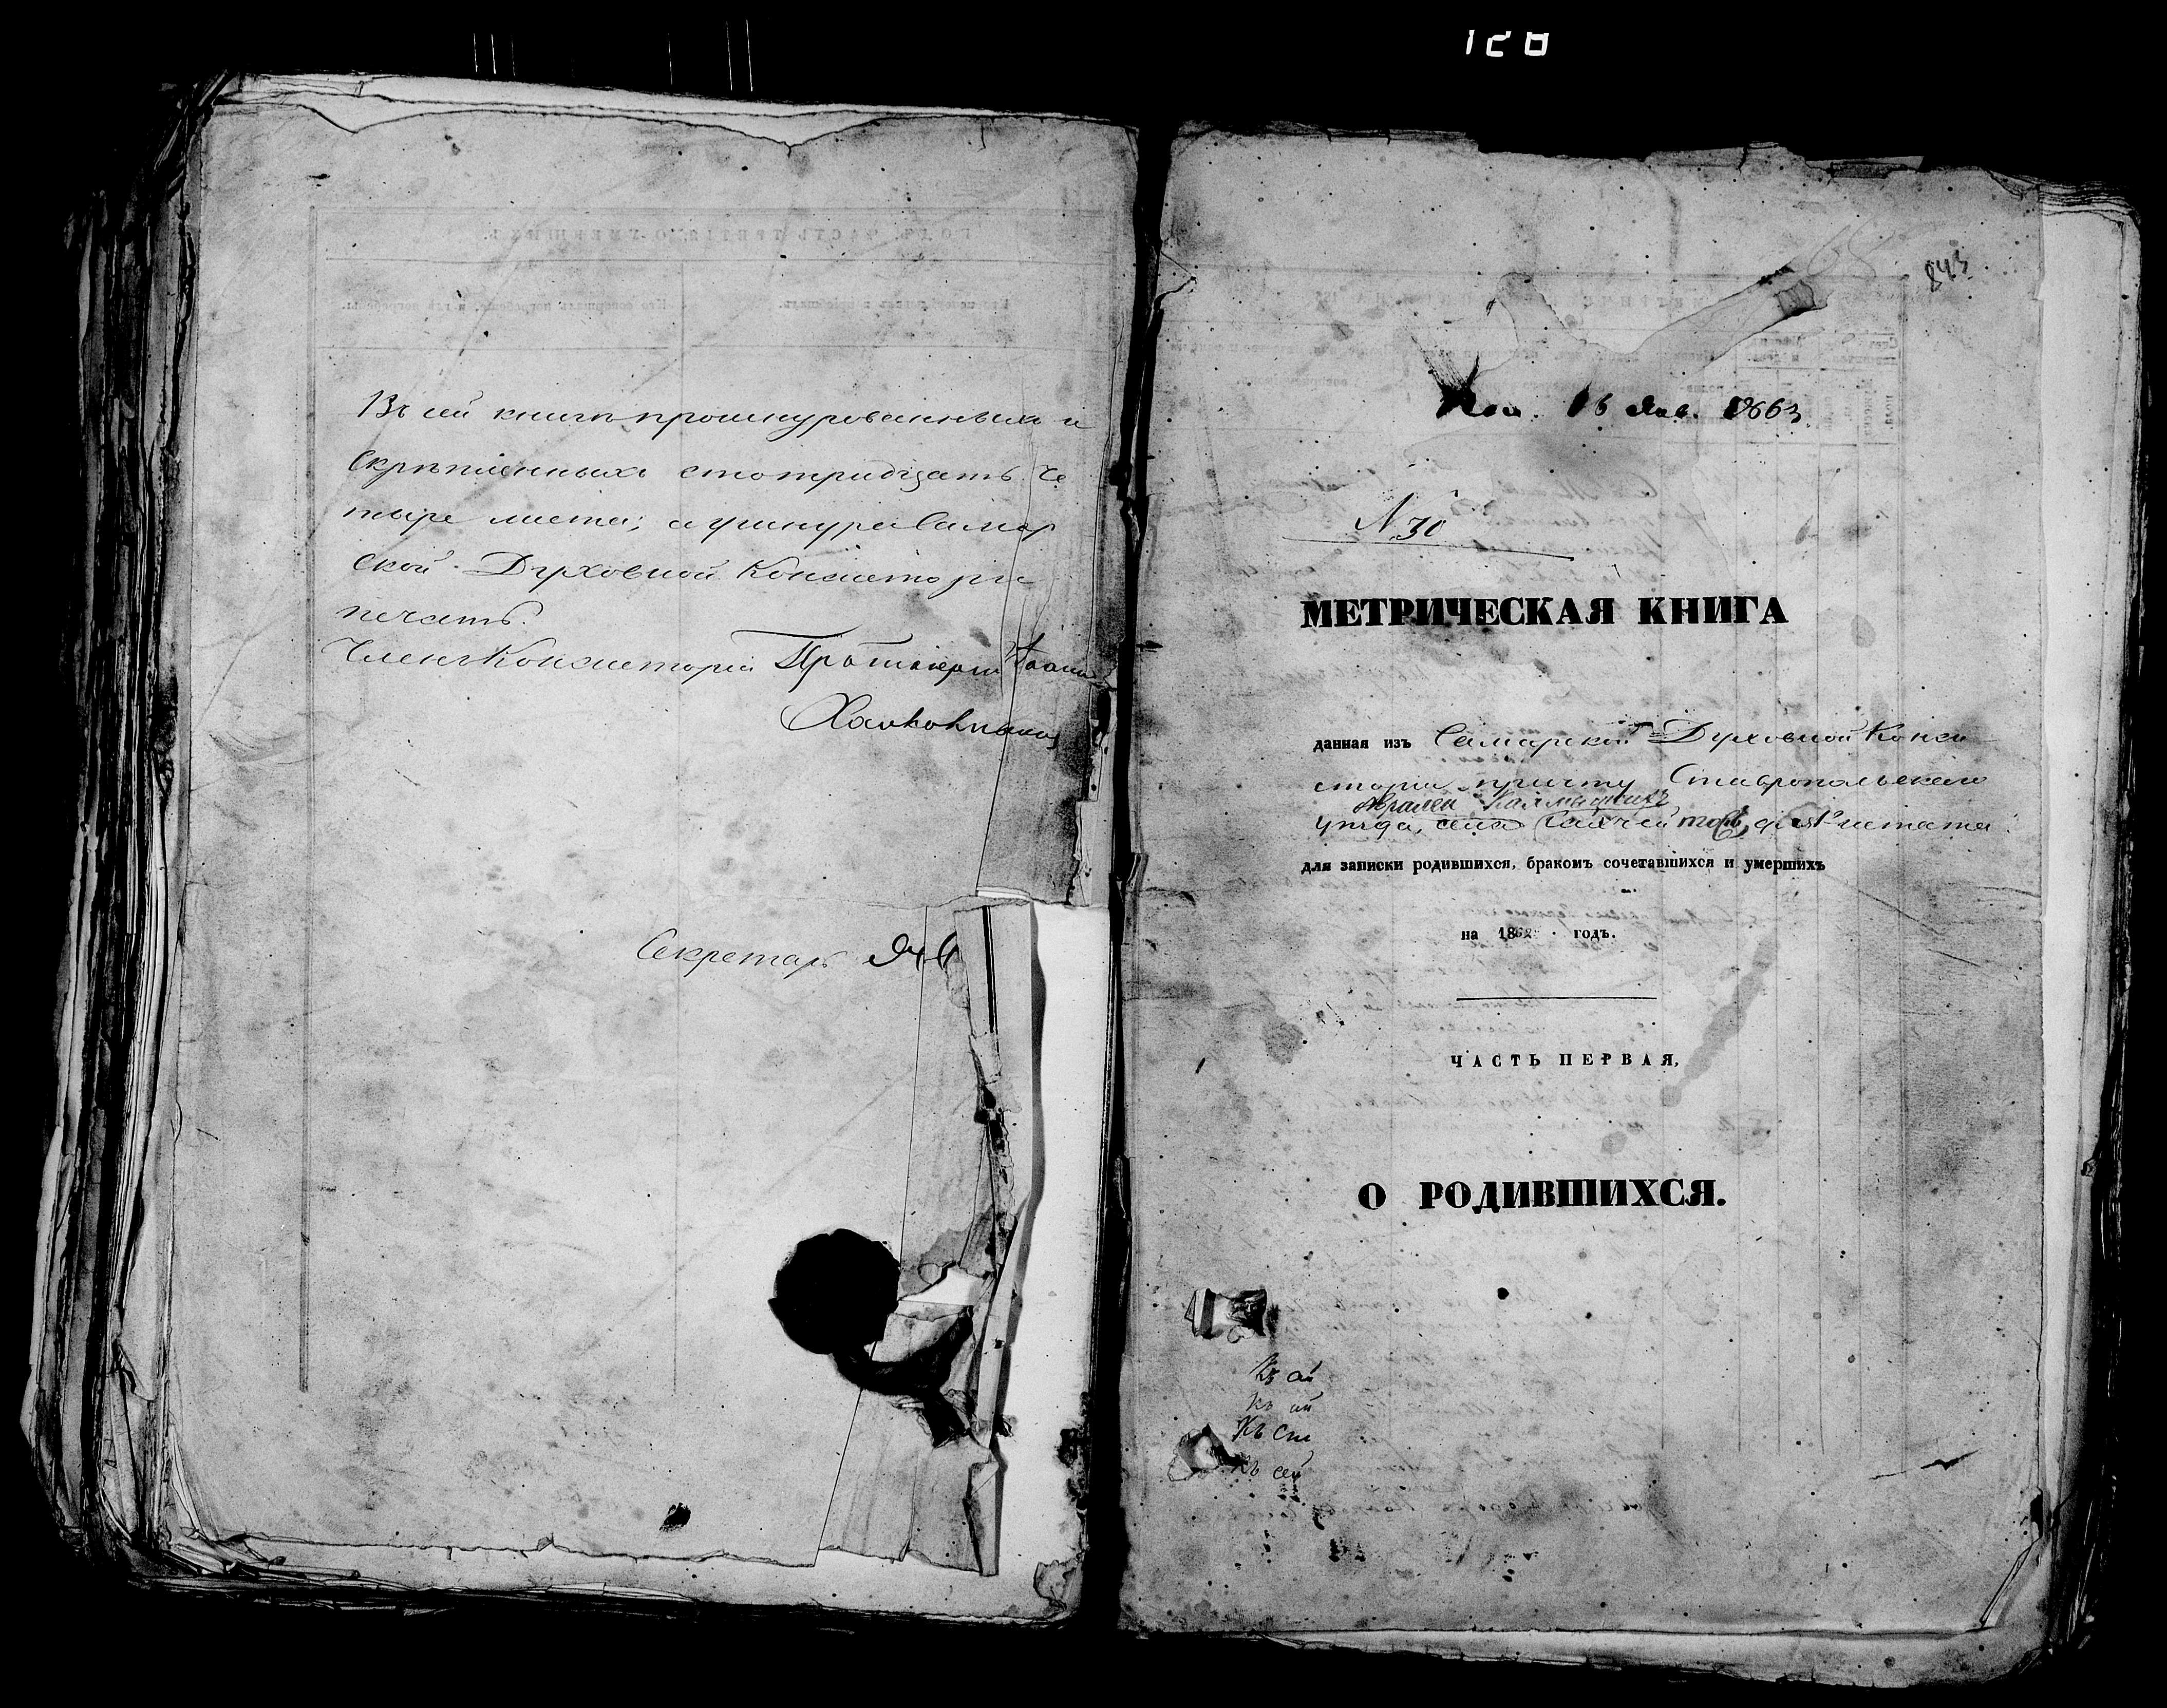 Въ сей книгѣ прошнурованныхъ и
скрѣпленныхъ стотридцать че
тыре листа; а у шнура Самар
ской Духовной Консисторіи
печать.
Членъ Консисторіи Протоіерей Іоаннъ
Халколивановъ
Секретарь
128
843
16 Янв. 1863
№ 30
МЕТРИЧЕСКАЯ КНИГА
данная изъ Самарской Духовной Конси
сторіи причту Ставропольскаго
уѣзда, села для
для записки родившихся, бракомъ сочетавшихся и умершихъ
на 1862 годъ.
ЧАСТЬ ПЕРВАЯ,
О РОДИВШИХСЯ.
Къ
къ
Къ
Къ сей